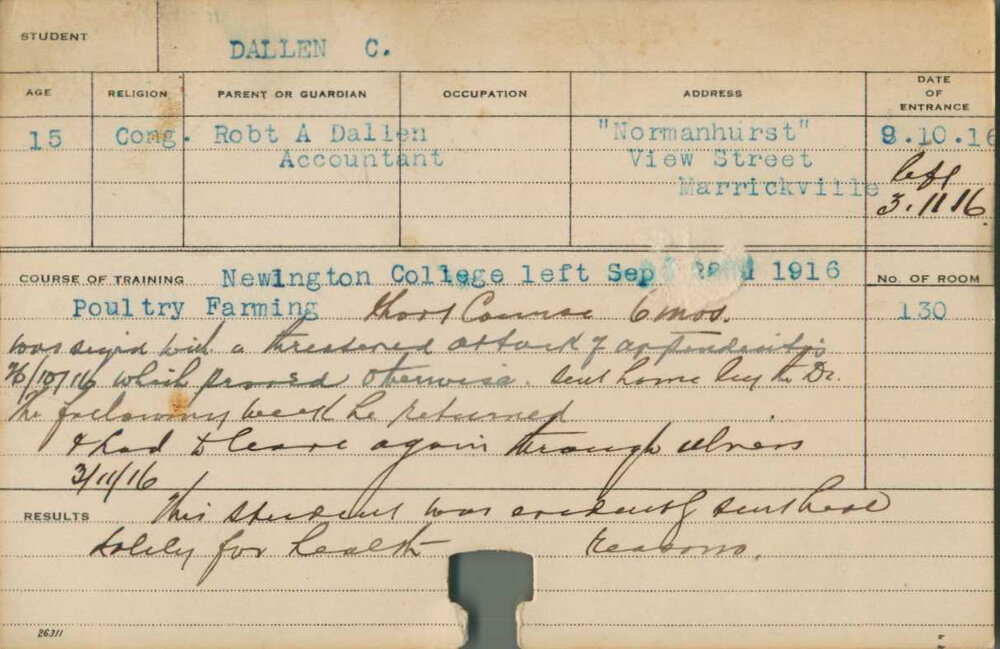 STUDENT
DALLEN C.
AGE RELIGION PARENT OR GUARDIAN OCCUPATION ADDRESS DATE OF ENTRANCE
15 Cong. Robt A Dallen "Normanhurst" 9.10.16
Accountant View Street left
Marrickville 3.11.16
COURSE OF TRAINING Newington College left Sep 1916 No. OF ROOM
Poultry Farming Short Course 6 mos. 130
was seized with a threatened attack of appendicitis
26/10/16 which proved otherwise. Sent home by the Dr.
the following week he returned
& had to leave again through illness
3/11/16
RESULTS This student was evidently sent here
solely for health reasons.
26311